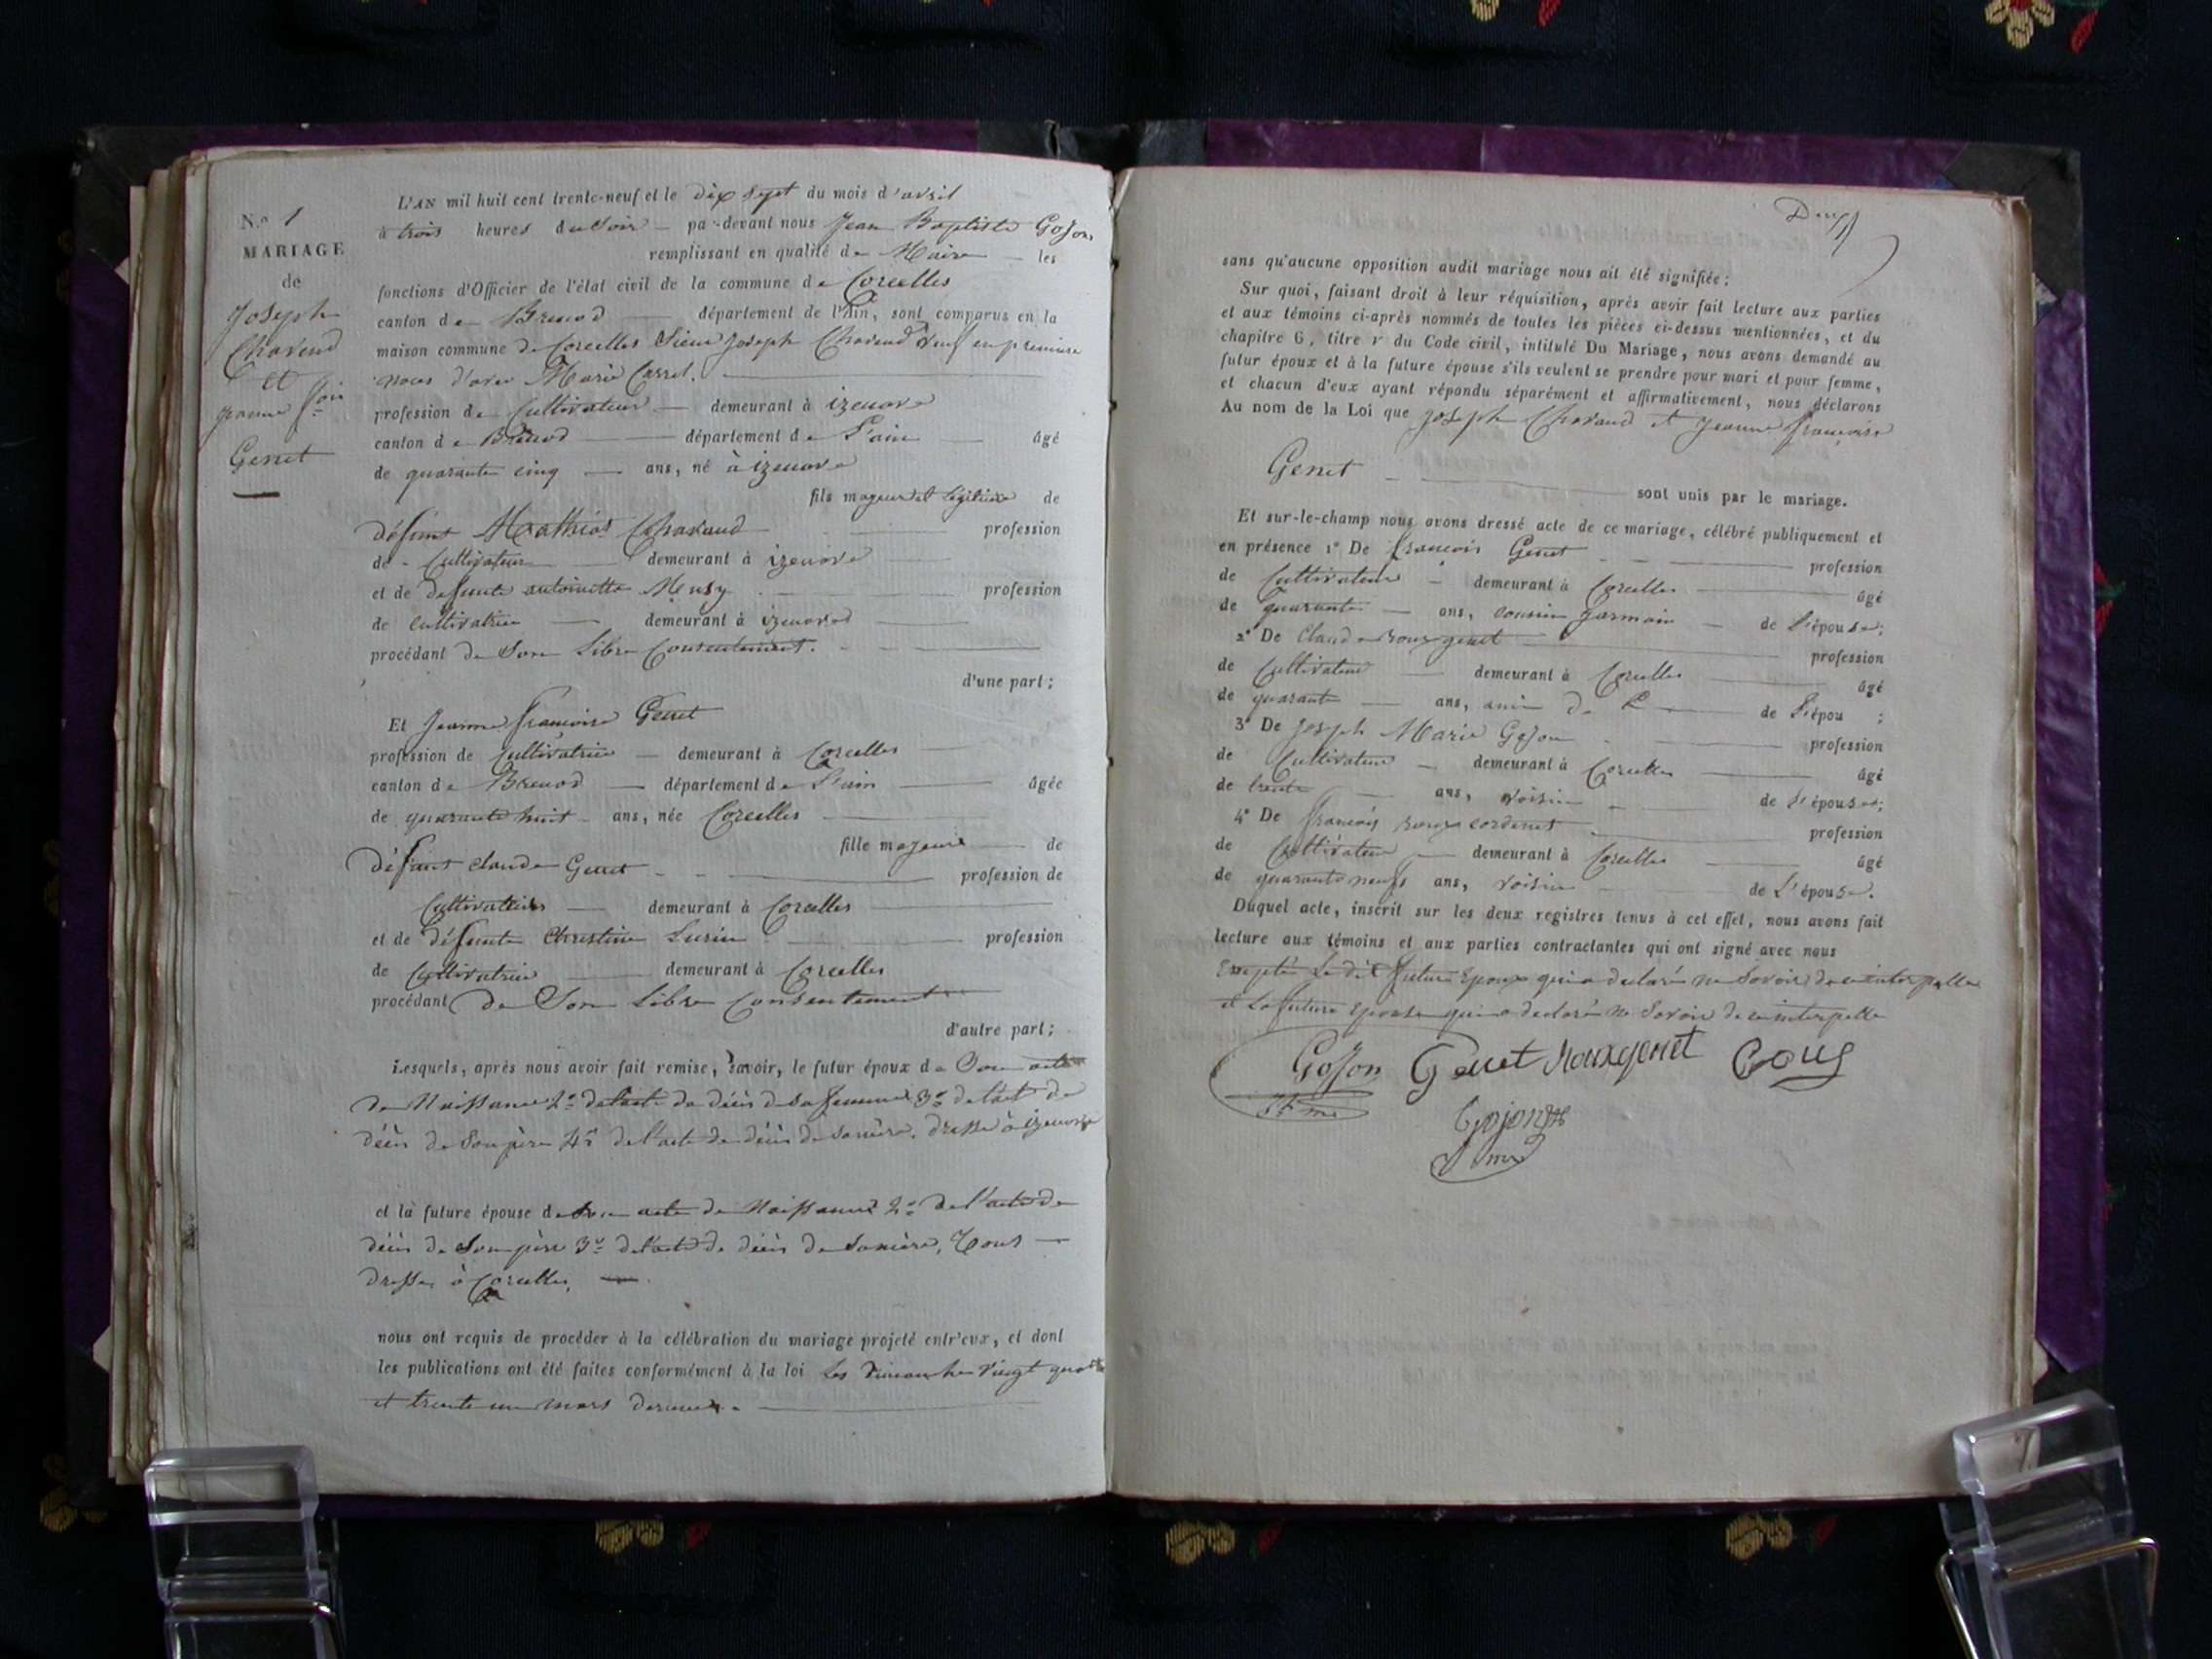 N.o 1
MARIAGE
de
Joseph
Chavend
et
jeanne f.coise
Genet
L'AN mil huit cent trente-neuf et le dix sept du mois d'avril
à trois heures du soir par-devant nous Jean Baptiste Gojon
remplissant en qualité de Maire les
fonctions d'Officier de l'état civil de la commune de Corcelles
canton de Brenod département de l'Ain, sont comparus en la
maison commune de Corcelles Sieur joseph Chavend veuf en premiere
noces d'avec Marie Carrel.
profession de Cultivateur demeurant à izenave
canton de Brenod département de L'ain âgé
de quarante cinq ans, né à izenave
fils majeur et légitime de
défunt Mathias Chavend profession
de Cultivateur demeurant à izenave
et de défunte antoinette Neusy profession
de cultivatrice demeurant à izenave
procédant de Son Libre Consentement.
d'une part;
Et Jeanne françoise Genet
profession de Cultivatrice demeurant à Corcelles
canton de Brenod département de L'ain âgée
de quarante huit ans, née Corcelles
fille majeure de
défunt claude Genet profession de
Cultivateur demeurant à Corcelles
et de défunte Christine Surin profession
de Cultivatrice demeurant à Corcelles
procédant de Son Libre Consentement
d'autre part;
Lesquels, après nous avoir fait remise, savoir, le futur époux de Son acte
de Naissance 2° de l'acte de décès de sa femme 3° de l'act de
décès de Son père 4° de l'acte de décès de samère. dressé à izenave
et la future épouse de Son acte de Naissance 2° de l'acte de
décès de Son père 3° de l'acte de décès de samère, Tous
dresser à Corcelles,
nous ont requis de procéder à la célébration du mariage projeté entr'eux, et dont
les publications ont été faites conformément à la loi Les Dimanches vingt quatre
et trente un mars dernier.
Deux
sans qu'aucune opposition audit mariage nous ait été signifiée;
Sur quoi, faisant droit à leur réquisition, après avoir fait lecture aux parties
et aux témoins ci-après nommés de toutes les pièces ci-dessus mentionnées, et du
chapitre 6, titre v du Code civil, intitulé Du Mariage, nous avons demandé au
futur époux et à la future épouse s'ils veulent se prendre pour mari et pour femme,
et chacun d'eux ayant répondu séparément et affirmativement, nous déclarons
Au nom de la Loi que joseph Chavend et Jeanne françoise
Genet sont unis par le mariage.
Et sur-le-champ nous avons dressé acte de ce mariage, célébré publiquement et
en présence 1° De françois Genet profession
de Cultivateur demeurant à Corcelles âgé
de quarante ans, cousin germain de L'épouse;
2° De Claude roux genet profession
de Cultivateur demeurant à Corcelles âgé
de quarante ans, ami de L'épou ;
3° De joseph Marie Gojon profession
de Cultivateur demeurant à Corcelles âgé
de trente ans, voisin de L'épouse;
4° De françois roux cordenet profession
de Cultivateur demeurant à Corcelles âgé
de quarante neuf ans, voisin de L'épouse.
Duquel acte, inscrit sur les deux registres tenus à cet effet, nous avons fait
lecture aux témoins et aux parties contractantes qui ont signé avec nous
Excepté Le dit futur Epoux qui a declaré ne Savoir de ce interpelle
et La future Epouse qui a declaré ne Savoir de ce interpelle
Gojon Genet Rouxgenet Roux
Gojon